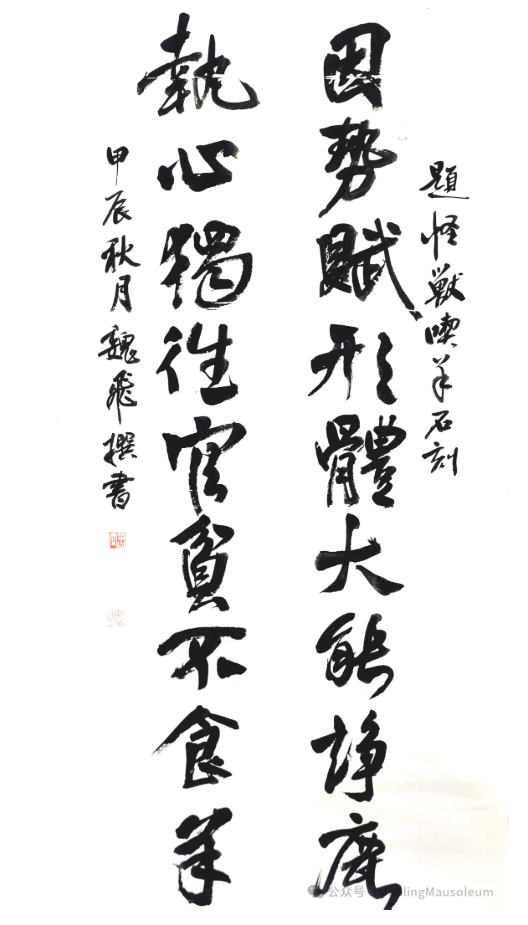 題怪獸喫羊石刻
因勢賦形體大能諍鹿
執心獨徃官貧不食羊
甲辰秋月魏飛撰書
公众号